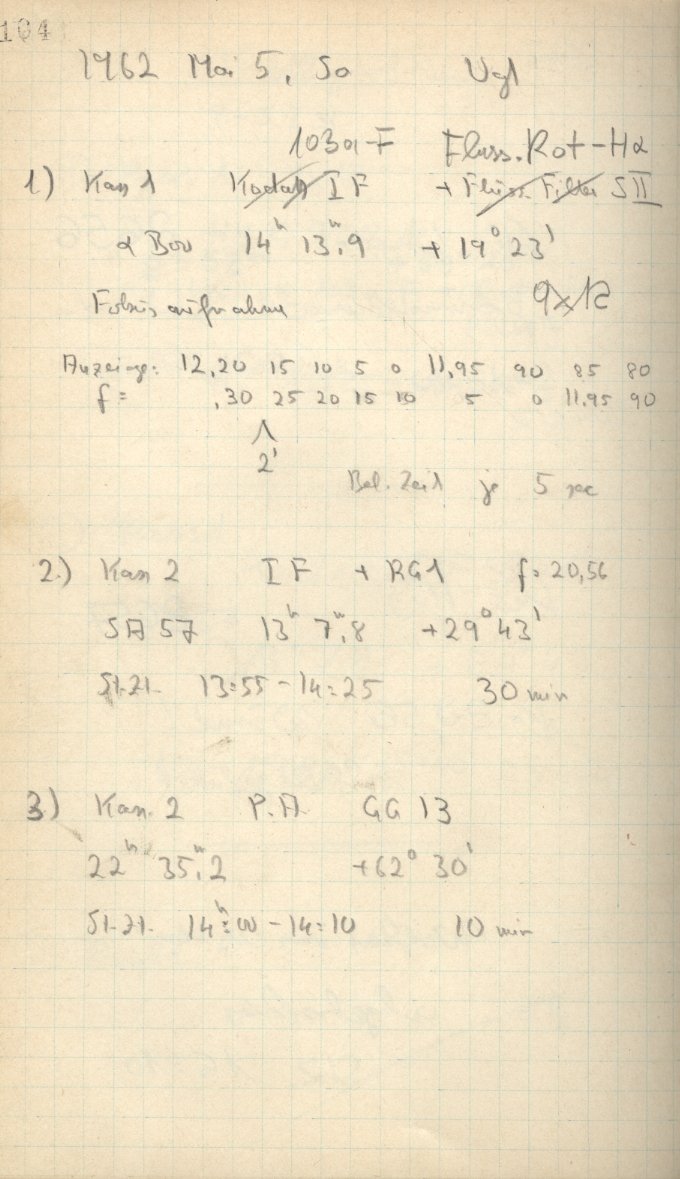 104
1962 Mai 5, So Vgl
103a-F Flüss. Rot-Hα
1) Kas 1 Kodak IF + Flüss. Filter S II
α Boo 14h 13m.9 + 19° 23'
Fokusaufnahme 9x12
Anzeige: 12,20 15 10 5 0 11,95 90 85 80
f = ,30 25 20 15 10 5 0 11,95 90
2'
Bel. Zeit je 5 sec
2.) Kas 2 IF + RG1 f= 20,56
SA 57 13h 7m.8 +29° 43'
St.Zt. 13:55 - 14:25 30 min
3) Kas. 2 P.A. GG 13
22h 35m.2 +62° 30'
St.Zt. 14h:00 - 14:10 10 min